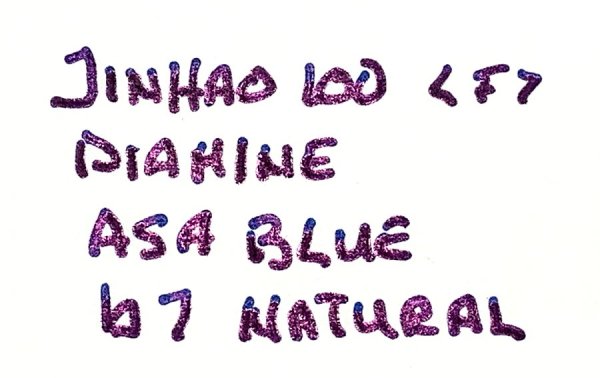 JINHAO 100 <F>
DIAMINE
ASA BLUE
67 NATURAL